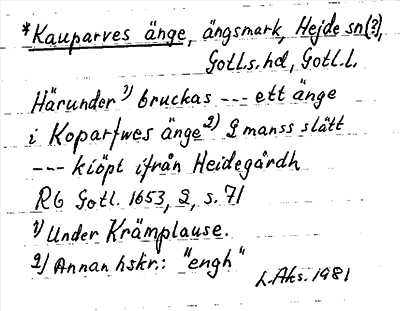 *Kauparves änge, ängsmark, Hejde sn(?),
Gotl.s.hd, Gotl.l.
Härunder 1) bruckas --- ett änge
i Koparfwes änge 2) 2 manss slått
--- kiöpt ifrån Heidegårdh
RG Gotl. 1653, 2, s. 71
1) Under Krämplause.
2) Annan hskr.: "engh"
L.Aks. 1981